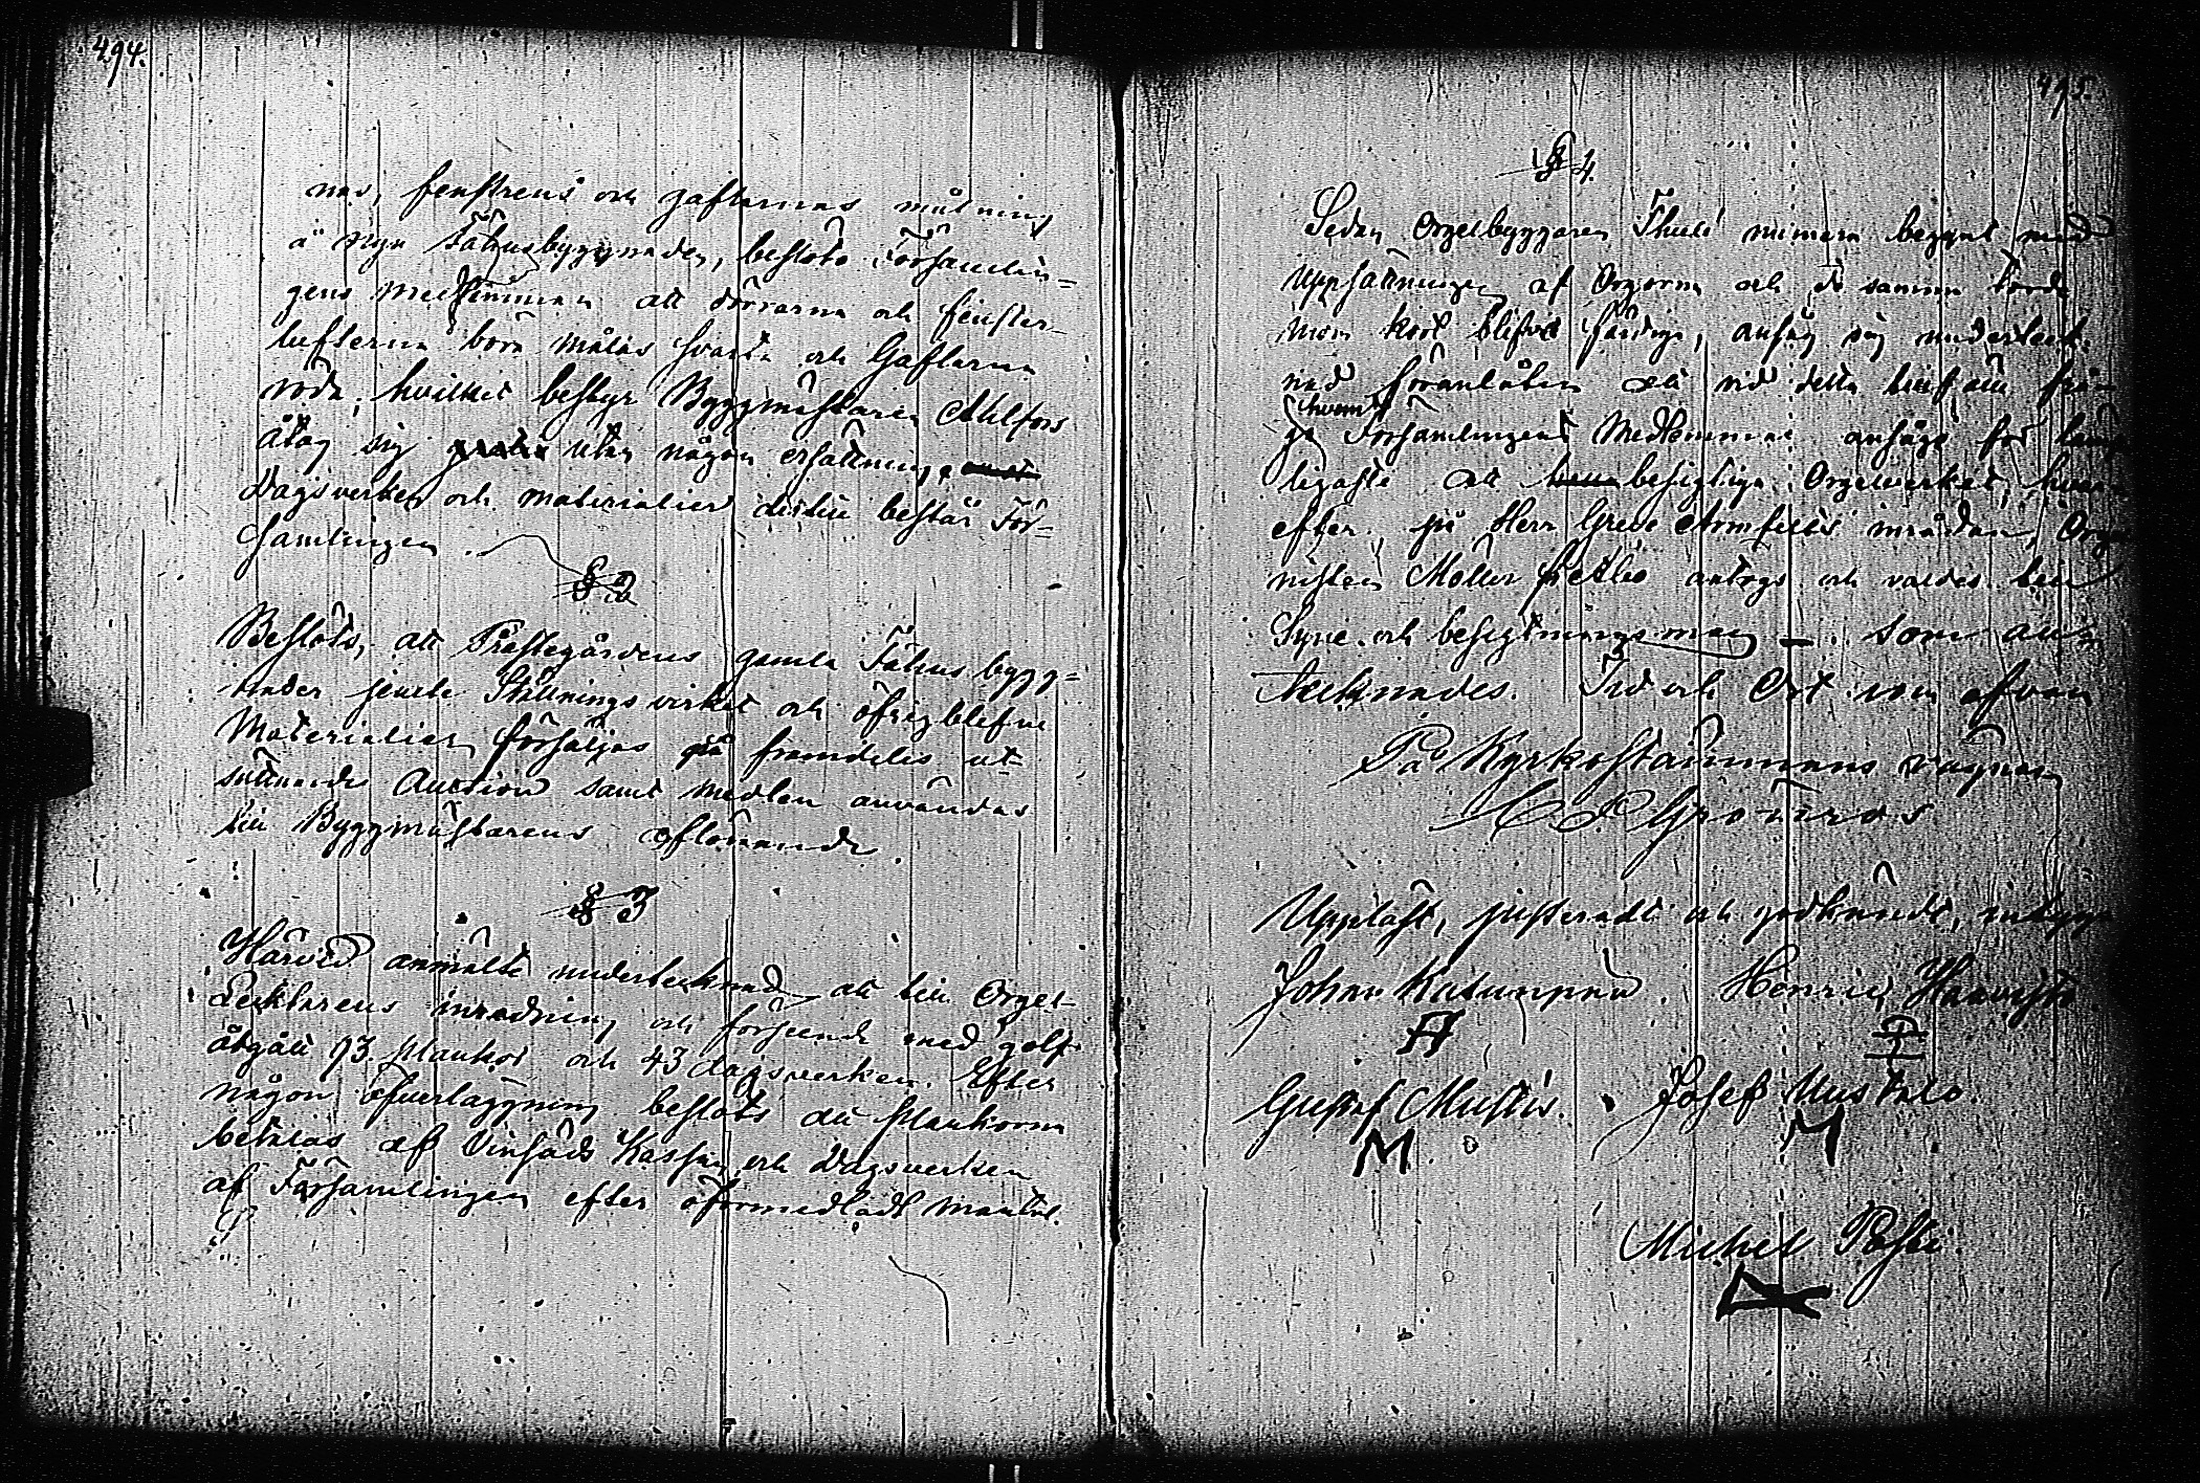 494.
nas, fenstrens och gaflarnas målning
å nya Fähusbyggnaden, beslöto Församlin-
gens Medlemmar att dörrarna och fenster-
lufterna böra målas svarta och Gaflarna
röda; hvilket bestyr Byggmästaren Ahlfors
åtog sig utan någon ersättning,
Dagsverken och materialier dertill består För-
samlingen.
§ 2
Beslöts, att Prästegårdens gamla Fähus bygg-
nader jemte Ställnings virket och öfverblefne
Materialier försäljas på framdeles ut-
sättande Auction samt medlen användas
till Byggmästarens aflönande.
§ 3
Härvid anmälte undertecknad att till Orgel-
Lecktarens inredning och förseende med golf
åtgått 93 plankor och 43 dagsverken. Efter
någon öfverläggning beslöts att plankorna
betalas af Vinsäds Kassan och Dagsverken
af Församlingen efter oförmedladt mantal.
495.
§ 4.
Sedan Orgelbyggaren Thulé numera begynt med
Uppsättningen af Orgorna och de samma torde
inom kort blifva färdiga, ansåg sig underteck-
nad föranlåten att vid detta tillfälle frå-
ga hvem Församlingens Medlemmar ansåge för lämp-
ligaste att besigtiga Orgelverket,
efter, på Herr Greve Armfelts inrådan, Orga-
nisten Möller antogs och valdes till
Syne- och besigtningsman – som
tecknades. Tid och Ort som ofvan
På Kyrkostämmans vägnar
Uppläst, justeradt och godkändt, intyga
Johan Henric
Gustaf Mustis. Josef Uusitalo
M M
Michel Påsti.